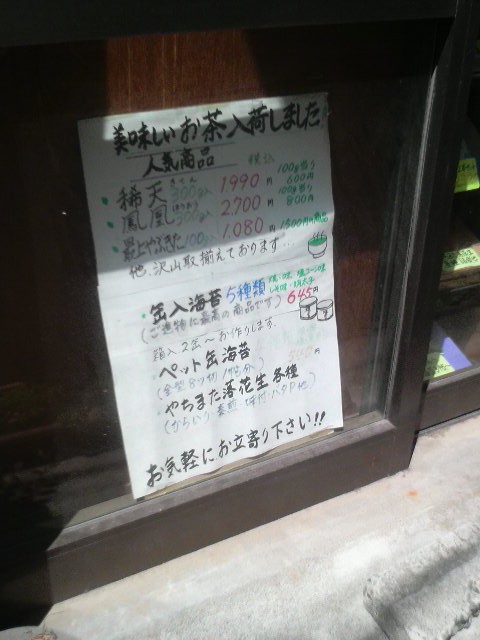 美味しいお茶入荷しました
人気商品 税込
稀天 300g入 1990円 100g当り 600円
鳳凰 300g入 2700円 100g当り 800円
最上やぶきた100g入 1,080円 1500円商品
他、沢山取揃えております…
・缶入海苔 5種類 645円
(ご進物に最高の商品です)
箱入2缶〜お作りします。
・ペット缶海苔 円
(金型8ツ切
・やちまた落花生各種
味付・バタP他)
お気軽にお立寄り下さい!!